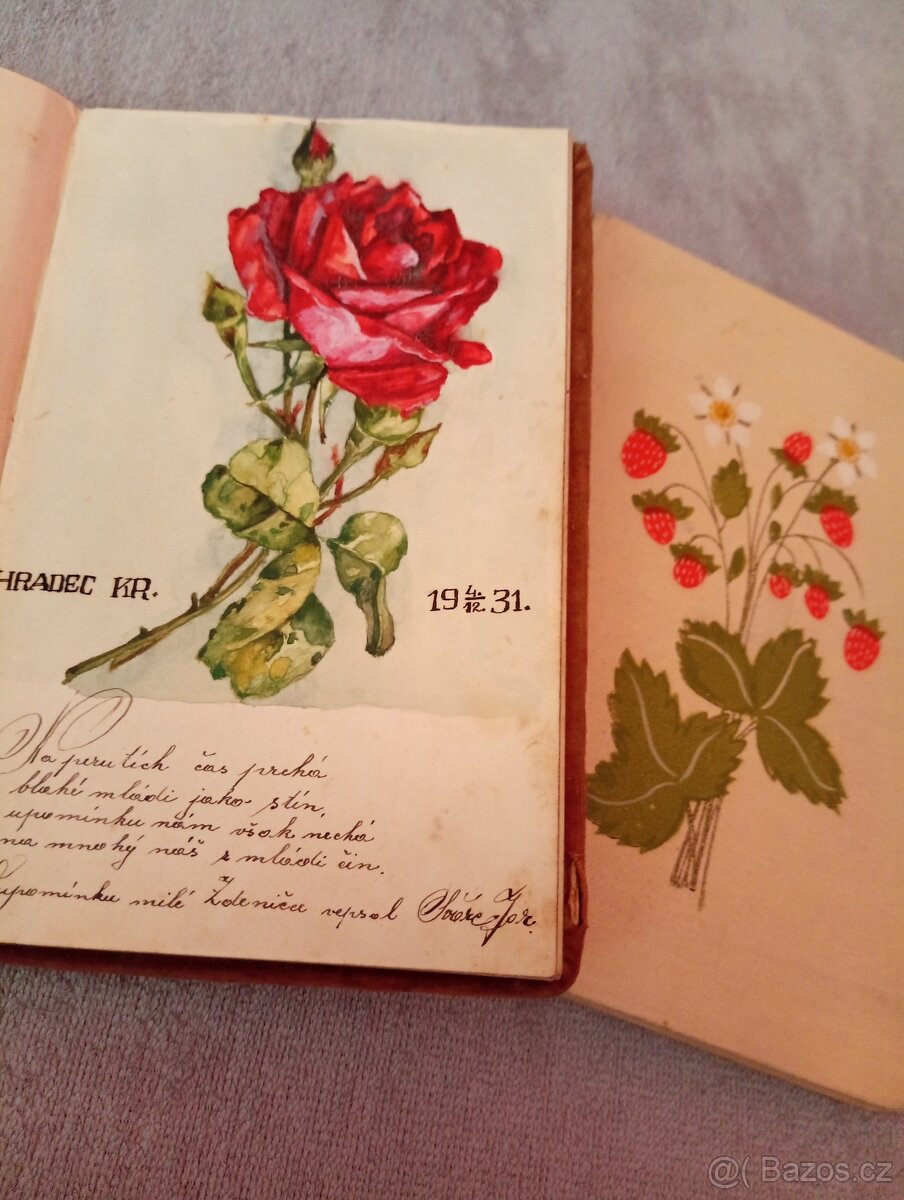 HRADEC KR.
19 4./12. 31.
Na perutích čas prchá
blahé mládí jako stín,
upomínku nám však nechá
na mnohý náš z mládí čin.
upomínku milé Zdeničce vepsal
@( Bazos.cz